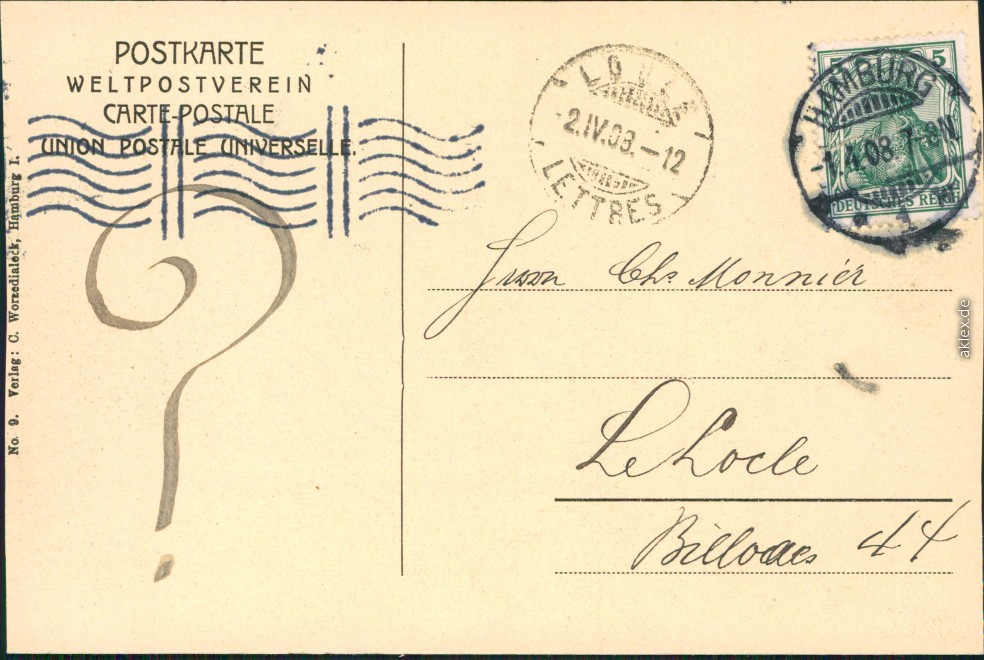 POSTKARTE
WELTPOSTVEREIN
CARTE-POSTALE
UNION POSTALE UNIVERSELLE.
?
No. 9. Verlag: C. Worzedialeck, Hamburg I.
2.IV.08.-12
LETTRES
5 5
HAMBURG
1.4.08. 7-8N.
1
DEUTSCHES REICH
Herrn Chs Monnier
Le Locle
Billodes 44
aklex.de